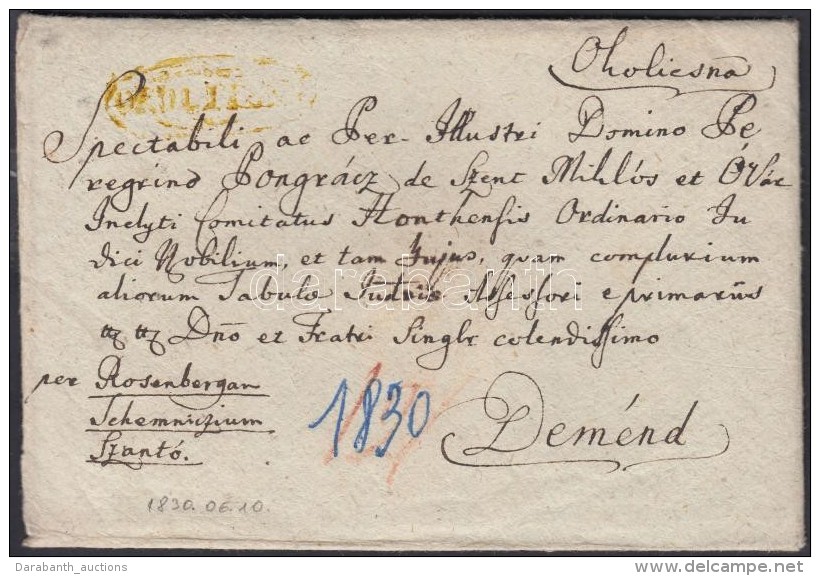 Okolicsna
Spectabili ac Per-Illustri Domino Pe
regrino Pongrácz de Szent Miklós et Óvár
Inclyti Comitatus Honthensis Ordinario Ju
dici Nobilium, et tam hujus, quam complurium
aliorum Tabulæ Judriæ Assessori e primariis
ttz ttz Dño et Fratri Singlr colendissimo
per Rosenbergam
Schemniczium
Szántó.
1830
Deménd
1830.06.10.
darabanth
Darabanth_auctions
delcampe.net